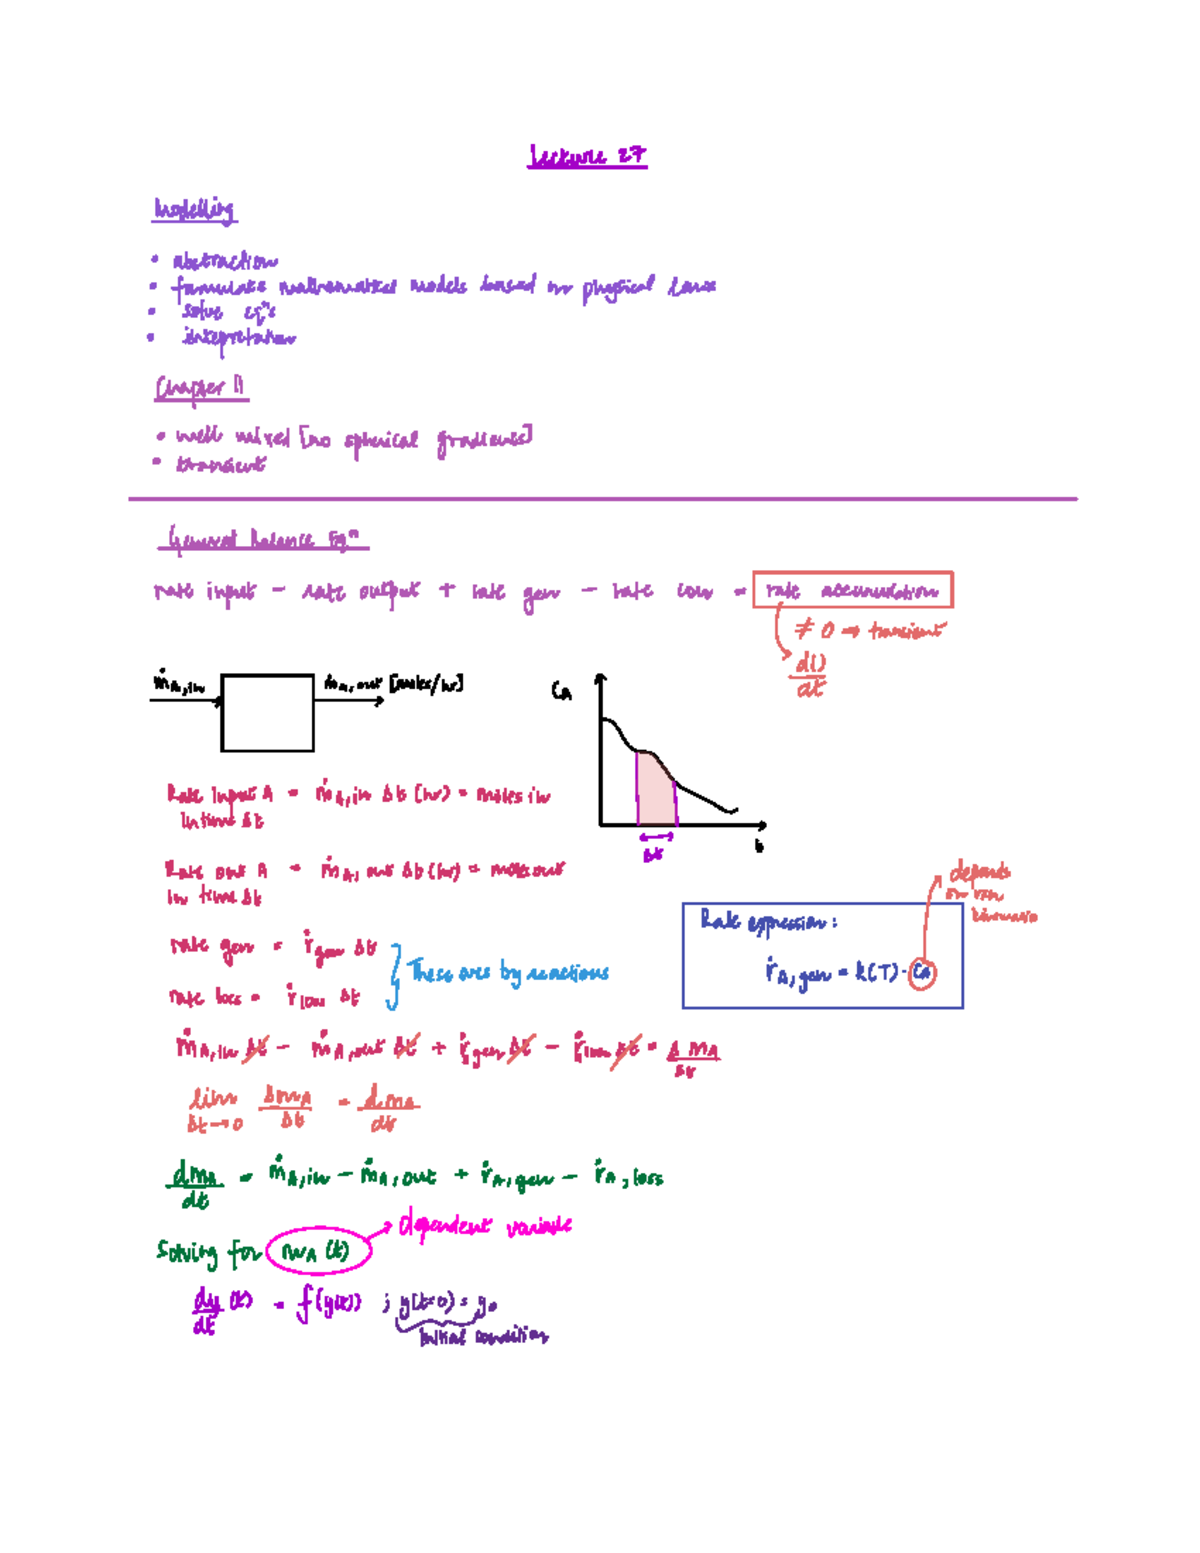 Lecture 27
Modelling
• abstraction
• formulate mathematical models based on physical laws
• solve eqⁿs
• intepretation
Chapter 11
• well mixed [no spherical gradients]
• transient
General Balance Eqⁿ
rate input − rate output + rate gen − rate con = rate accumulation
≠ 0 → transient
d()/dt
ṁA,in
ṁA,out [moles/hr]
CA
Δt
t
Rate Input A = ṁA,in Δt (hr) = moles in
In time Δt
Rate out A = ṁA,out Δt (hr) = moles out
In time Δt
depends
on rxn
kinematic
Rate expression:
ṙA,gen = k(T)·CA
rate gen = ṙgen Δt
rate loss = ṙloss Δt
These are by reactions
ṁA,in Δt − ṁA,out Δt + ṙgen Δt − ṙloss Δt = ΔmA/Δt
lim Δt→0 ΔmA/Δt = dmA/dt
dmA/dt = ṁA,in − ṁA,out + ṙA,gen − ṙA,loss
Solving for mA(t) → dependent variable
dy/dt (t) = f(y(t)) ; y(t=0) = y₀
Initial condition